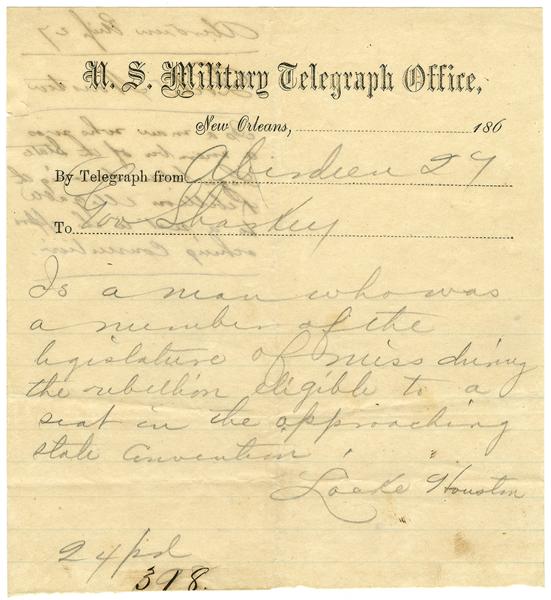 U. S. Military Telegraph Office,
New Orleans, 186
By Telegraph from Aberdeen 27
To Gov Sharkey
Is a man who was
a member of the
legislature of Miss during
the rebellion eligible to a
seat in the approaching
state convention.
Locke Houston
24 pd
398.